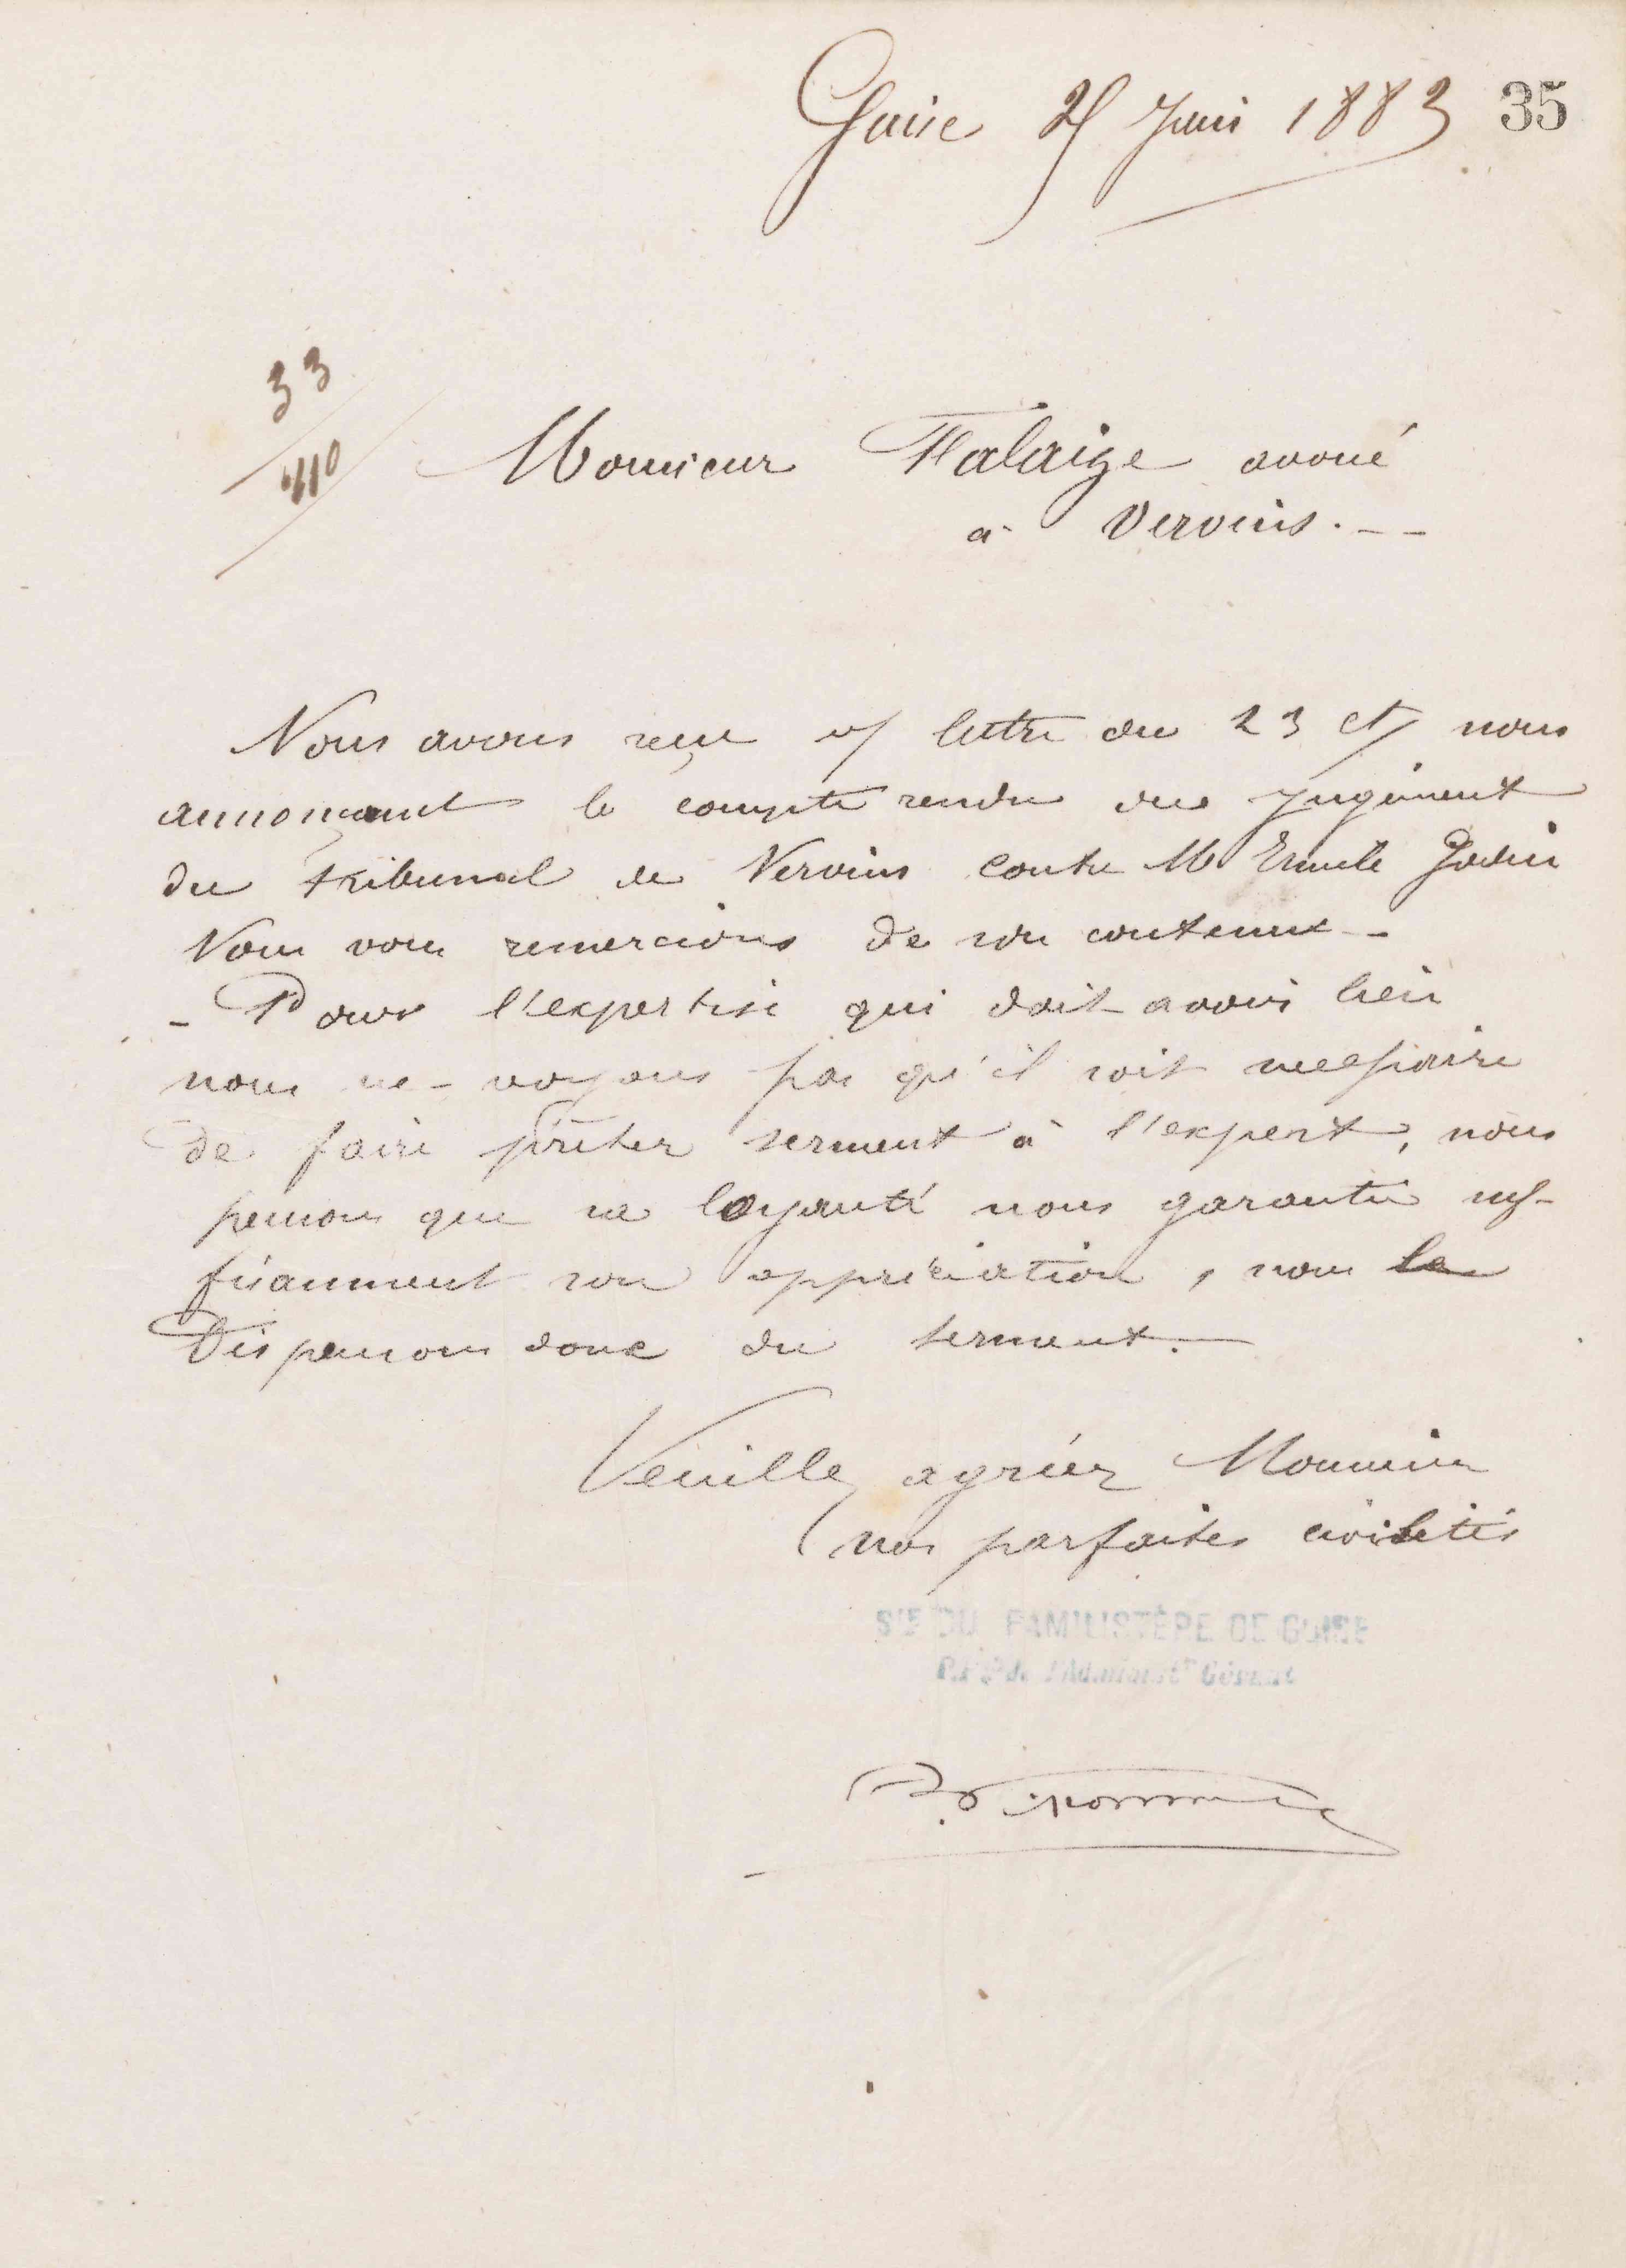 Guise 25 Juin 1883 35
33
410
Monsieur Falaize avoué
à Vervins. --
Nous avons reçu v/ lettre du 23 ct/ nous
annonçant le compte rendu du jugement
du tribunal de Vervins contre Mr Emile Godin
Nous vous remercions de son contenu -
- Pour l'expertise qui doit avoir lieu
nous ne voyons pas qu'il soit necessaire
de faire prêter serment à l'expert, nous
pensons que sa loyauté nous garantie suf-
fisamment son appréciation, nous le
Dispensons donc du serment.
Veuillez agréer Monsieur
nos parfaites civilités
STE DU FAMILISTÈRE DE GUISE